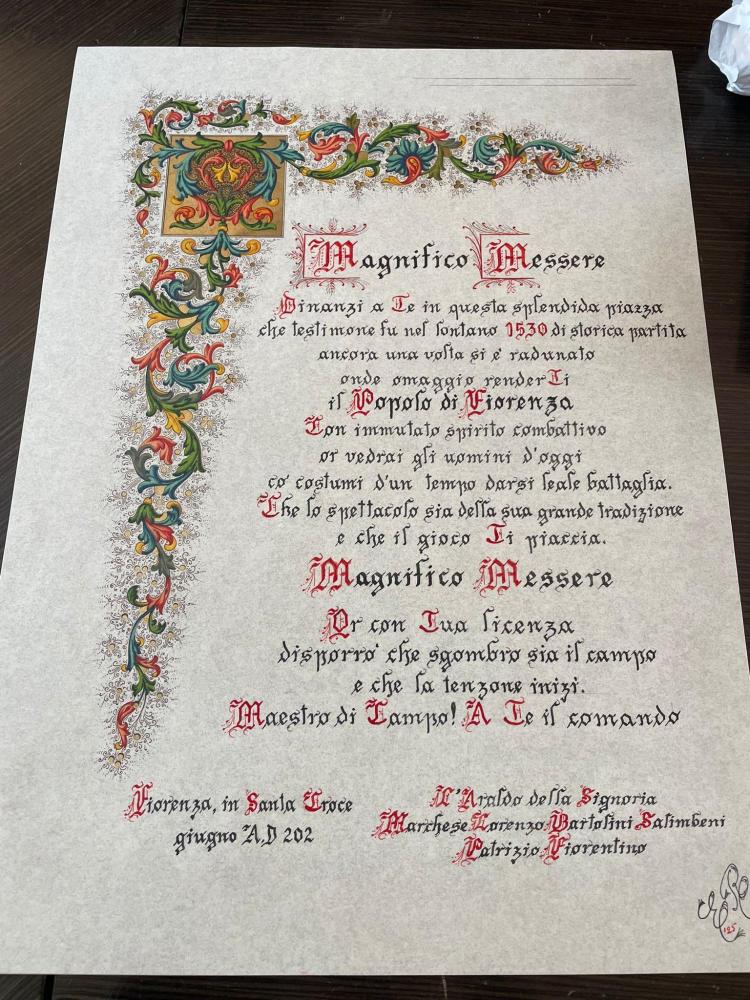 Magnifico Messere
Dinanzi a Te in questa splendida piazza
che testimone fu nel lontano 1530 di storica partita
ancora una volta si e' radunato
onde omaggio renderTi
il Popolo di Fiorenza
Con immutato spirito combattivo
or vedrai gli uomini d'oggi
co' costumi d'un tempo darsi leale battaglia.
Che lo spettacolo sia della sua grande tradizione
e che il gioco Ti piaccia.
Magnifico Messere
Or con Tua licenza
disporro' che sgombro sia il campo
e che la tenzone inizi.
Maestro di Campo! A Te il comando
Fiorenza, in Santa Croce
giugno A.D 202
L'Araldo della Signoria
Marchese Lorenzo Bartolini Salimbeni
Patrizio Fiorentino